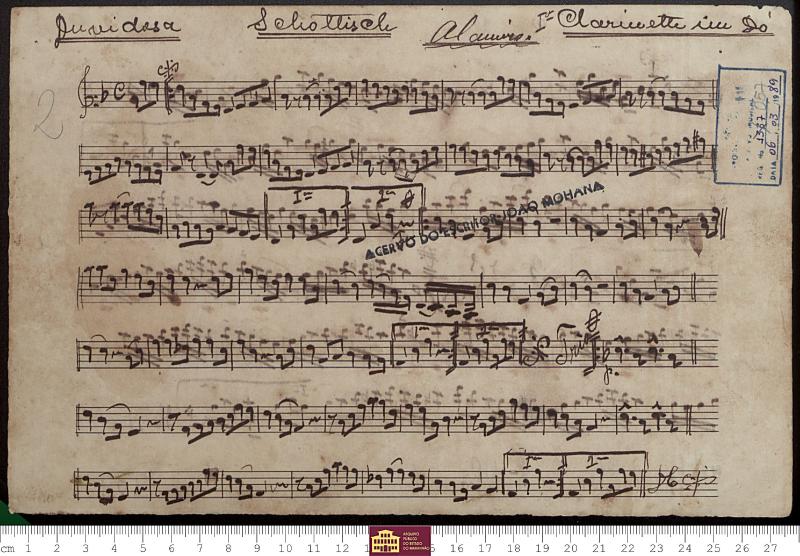 Duvidosa Schottisch Alamiro. 1º Clarinetti im Dó
2
1387
DATA 06.03.1989
1ª 2ª
ACERVO DO ESCRITOR JOÃO MOHANA
1ª 2ª
Trio
p.
1ª 2ª
D.C.
ARQUIVO
PÚBLICO
DO ESTADO
DO MARANHÃO
cm 1 2 3 4 5 6 7 8 9 10 11 12 13 15 16 17 18 19 20 21 22 23 24 25 26 27